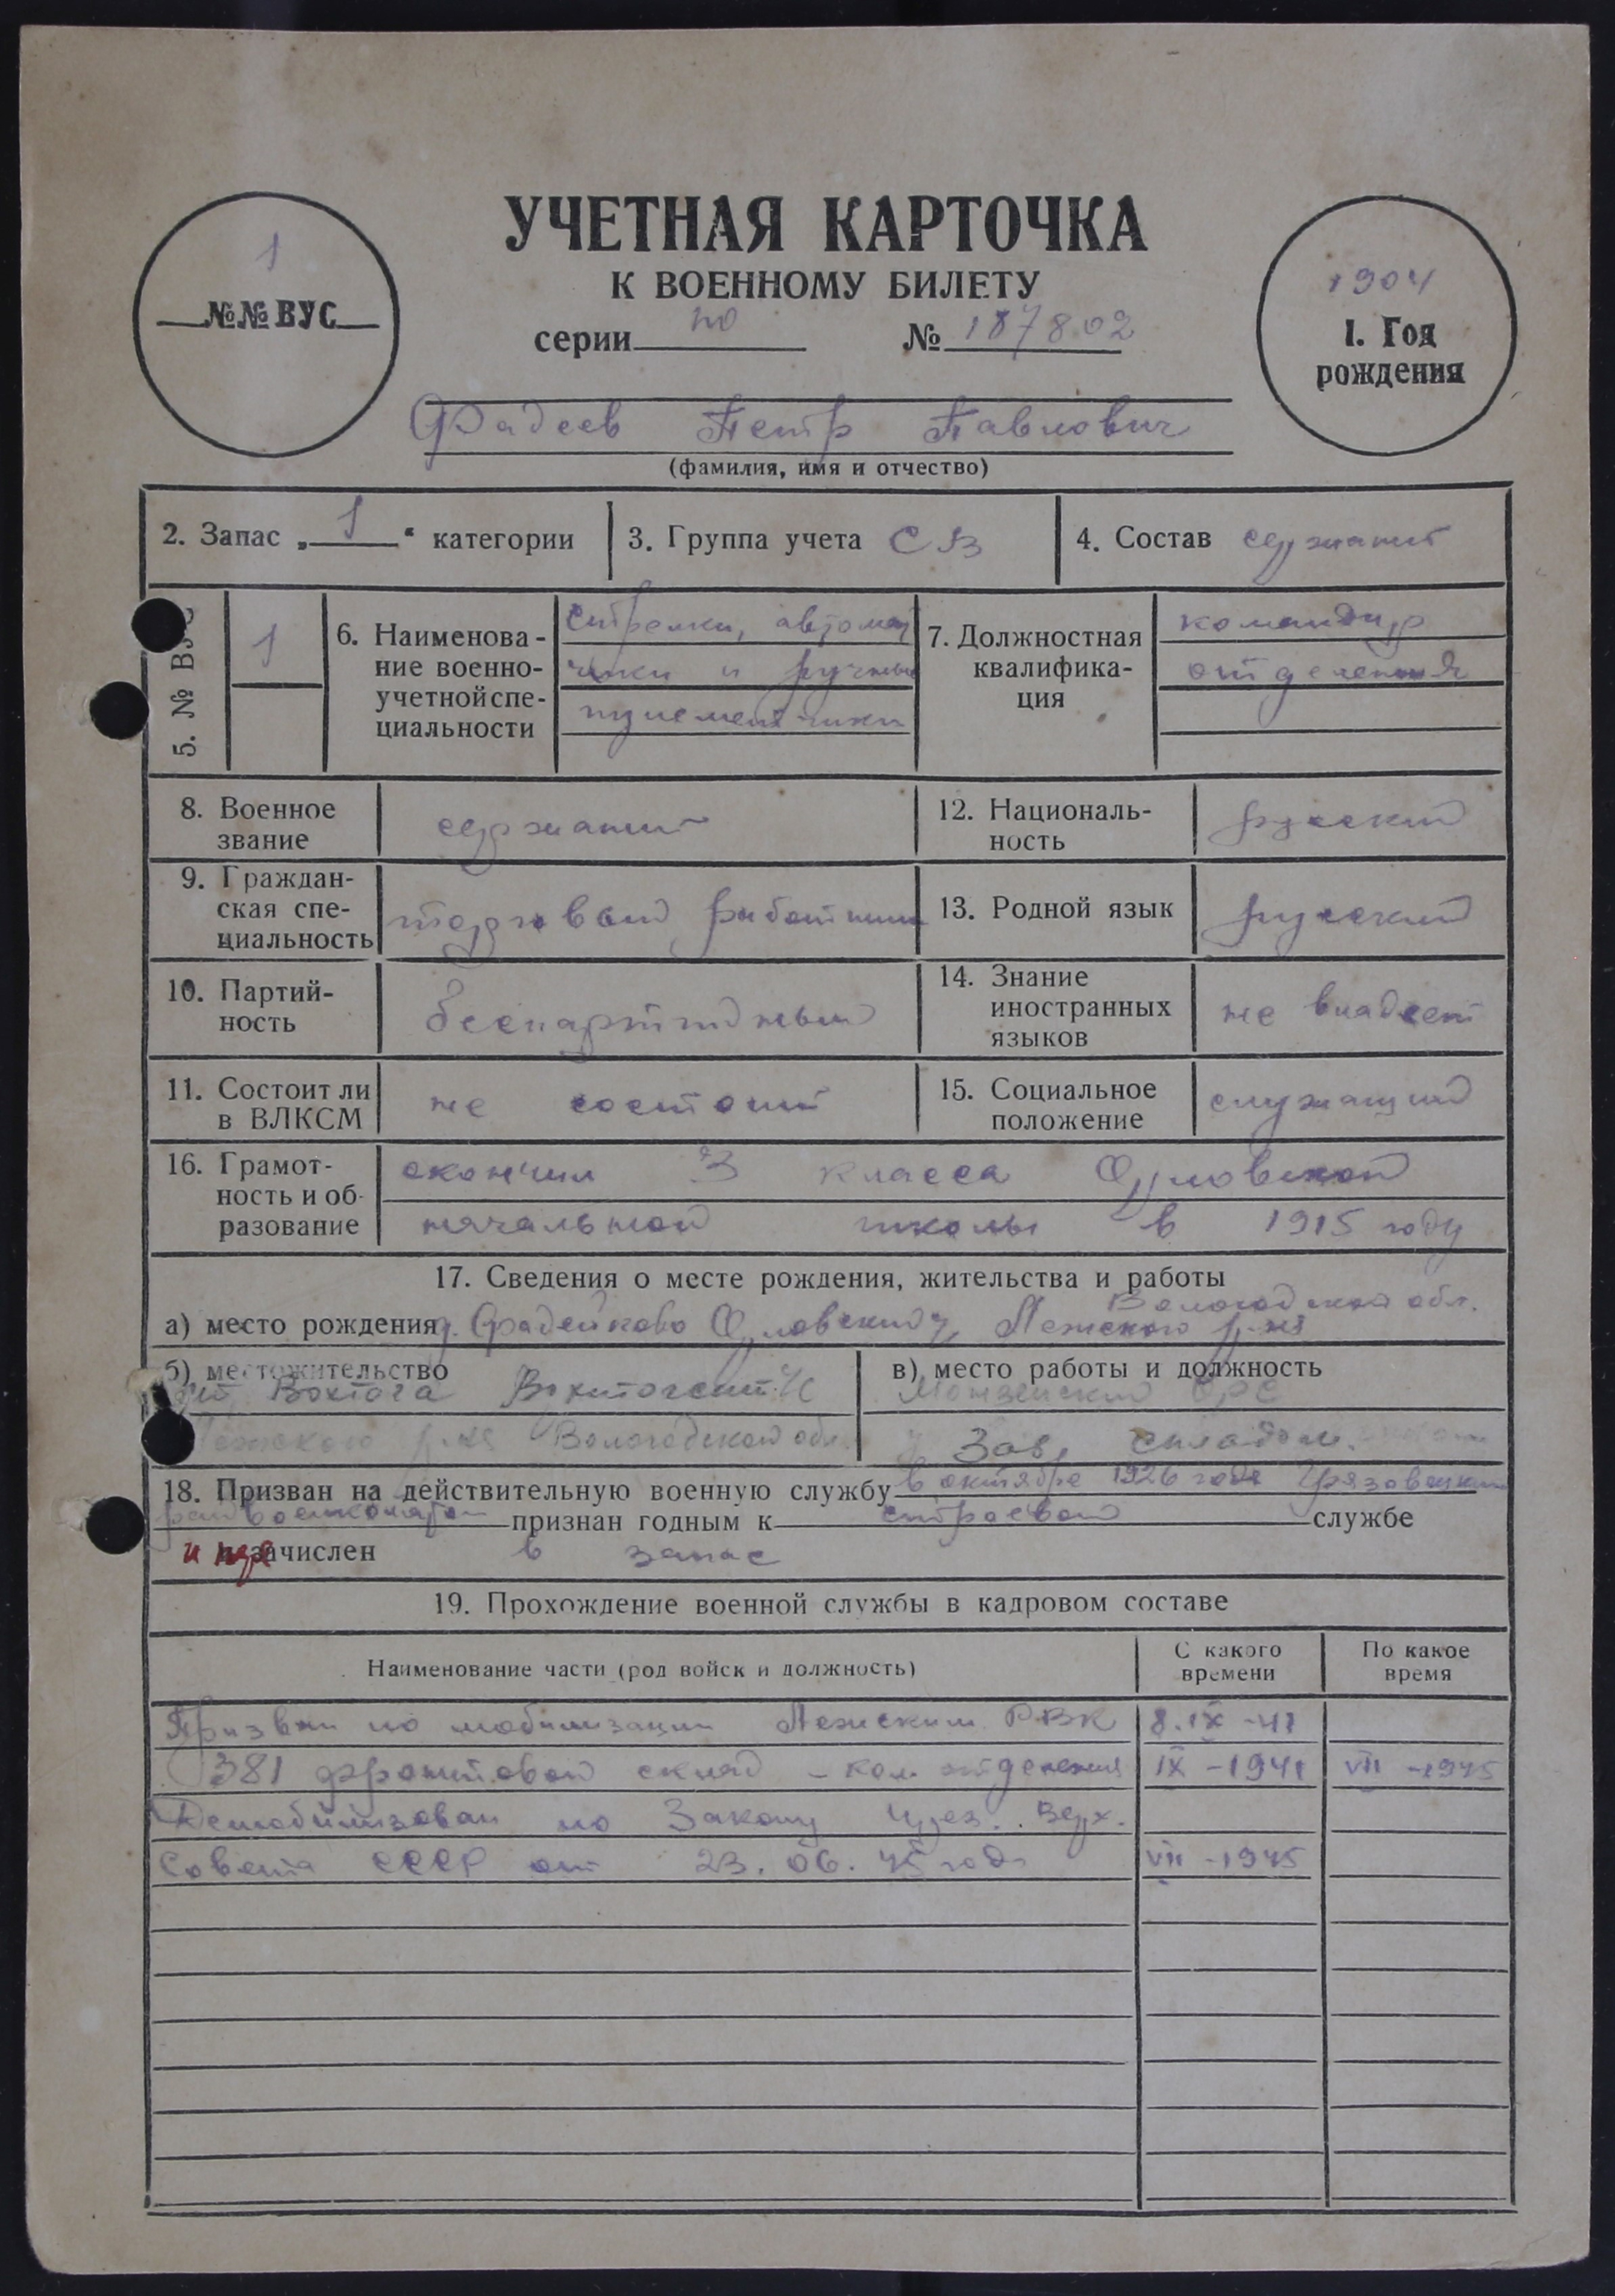 УЧЕТНАЯ КАРТОЧКА
К ВОЕННОМУ БИЛЕТУ
серии по № 187802
1
№№ ВУС
1904
1. Год
рождения
Фадеев Петр Павлович
(фамилия, имя и отчество)
2. Запас „1“ категории
3. Группа учета СВ
4. Состав сержант
5. № ВУС
1
6. Наименова-
ние военно-
учетной спе-
циальности
Стрелки, автомат
чики и ручные
пулеметчики
7. Должностная
квалифика-
ция
командир
отделения
8. Военное
звание
сержант
12. Националь-
ность
русский
9. Граждан-
ская спе-
циальность
торговый работник
13. Родной язык
русский
10. Партий-
ность
беспартийный
14. Знание
иностранных
языков
не владеет
11. Состоит ли
в ВЛКСМ
не состоит
15. Социальное
положение
служащий
16. Грамот-
ность и об-
разование
окончил 3 класса Орловской
начальной школы в 1915 году
17. Сведения о месте рождения, жительства и работы
Вологодской обл.
а) место рождения д. Фадейково Орловский Лежского р-на
б) местожительство
Вохтога
Лежского р-на Вологодской обл.
в) место работы и должность
Монзенский ОРС
Зав. складом
18. Призван на действительную военную службу в октябре 1926 года Грязовецким
райвоенкоматом признан годным к строевой службе
и зачислен в запас
19. Прохождение военной службы в кадровом составе
Наименование части (род войск и должность)
С какого
времени
По какое
время
Призван по мобилизации Лежским РВК 8.IX-41
381 фронтовой склад - ком отделения IX-1941 VII-1945
Демобилизован по Закону Верх.
Совета СССР от 23.06.45 года VII-1945